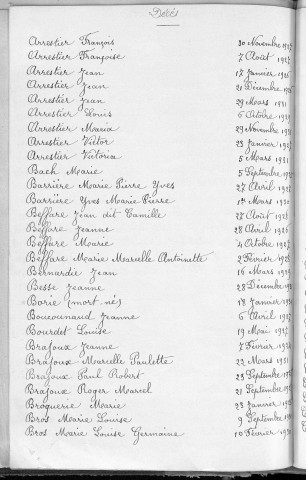 Décès
Arrestier François 30 Novembre
Arrestier Françoise 7 Août 1927
Arrestier Jean 17 Janvier 1926
Arrestier Jean 21 Décembre
Arrestier Jean 29 Mars 1931
Arrestier Louis 6 Octobre
Arrestier Maria 29 Novembre
Arrestier Victor 23 Janvier
Arrestier Victoria 5 Mars 1931
Bach Marie 5 Septembre
Barrière Marie Pierre Yves 27 Avril
Barrière Yves Marie Pierre 1er Mars 1930
Beffare Jean dit Camille 27 Août
Beffare Jeanne 28 Avril 1925
Beffare Marie 4 Octobre
Beffare Marie Marcelle Antoinette 2 Février
Bernardie Jean 16 Mars
Besse Jeanne 28 Décembre
Borie (mort né) 18 Janvier
Boucounaud Jeanne 6 Avril
Bourdet Louise 19 Mai
Brajoux Jeanne 7 Février
Brajoux Marcelle Paulette 22 Mars 1931
Brajoux Paul Robert Septembre
Brajoux Roger Marcel 21 Septembre
Broquerie Marie 23 Janvier
Bros Marie Louise 9 Septembre
Bros Marie Louise Germaine 10 Février